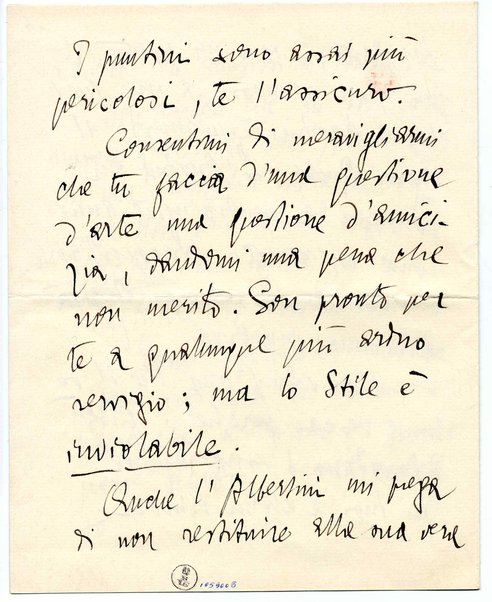 I puntini sono assai più
pericolosi, te l'assicuro.
Consentimi di meravigliarmi
che tu faccia d'una questione
d'arte una questione d'amici-
zia, dandomi una pena che
non merito. Son pronto per
te a qualunque più arduo
servigio; ma lo Stile è
inviolabile.
Anche l'Albertini mi prega
di non restituire alla sua vera